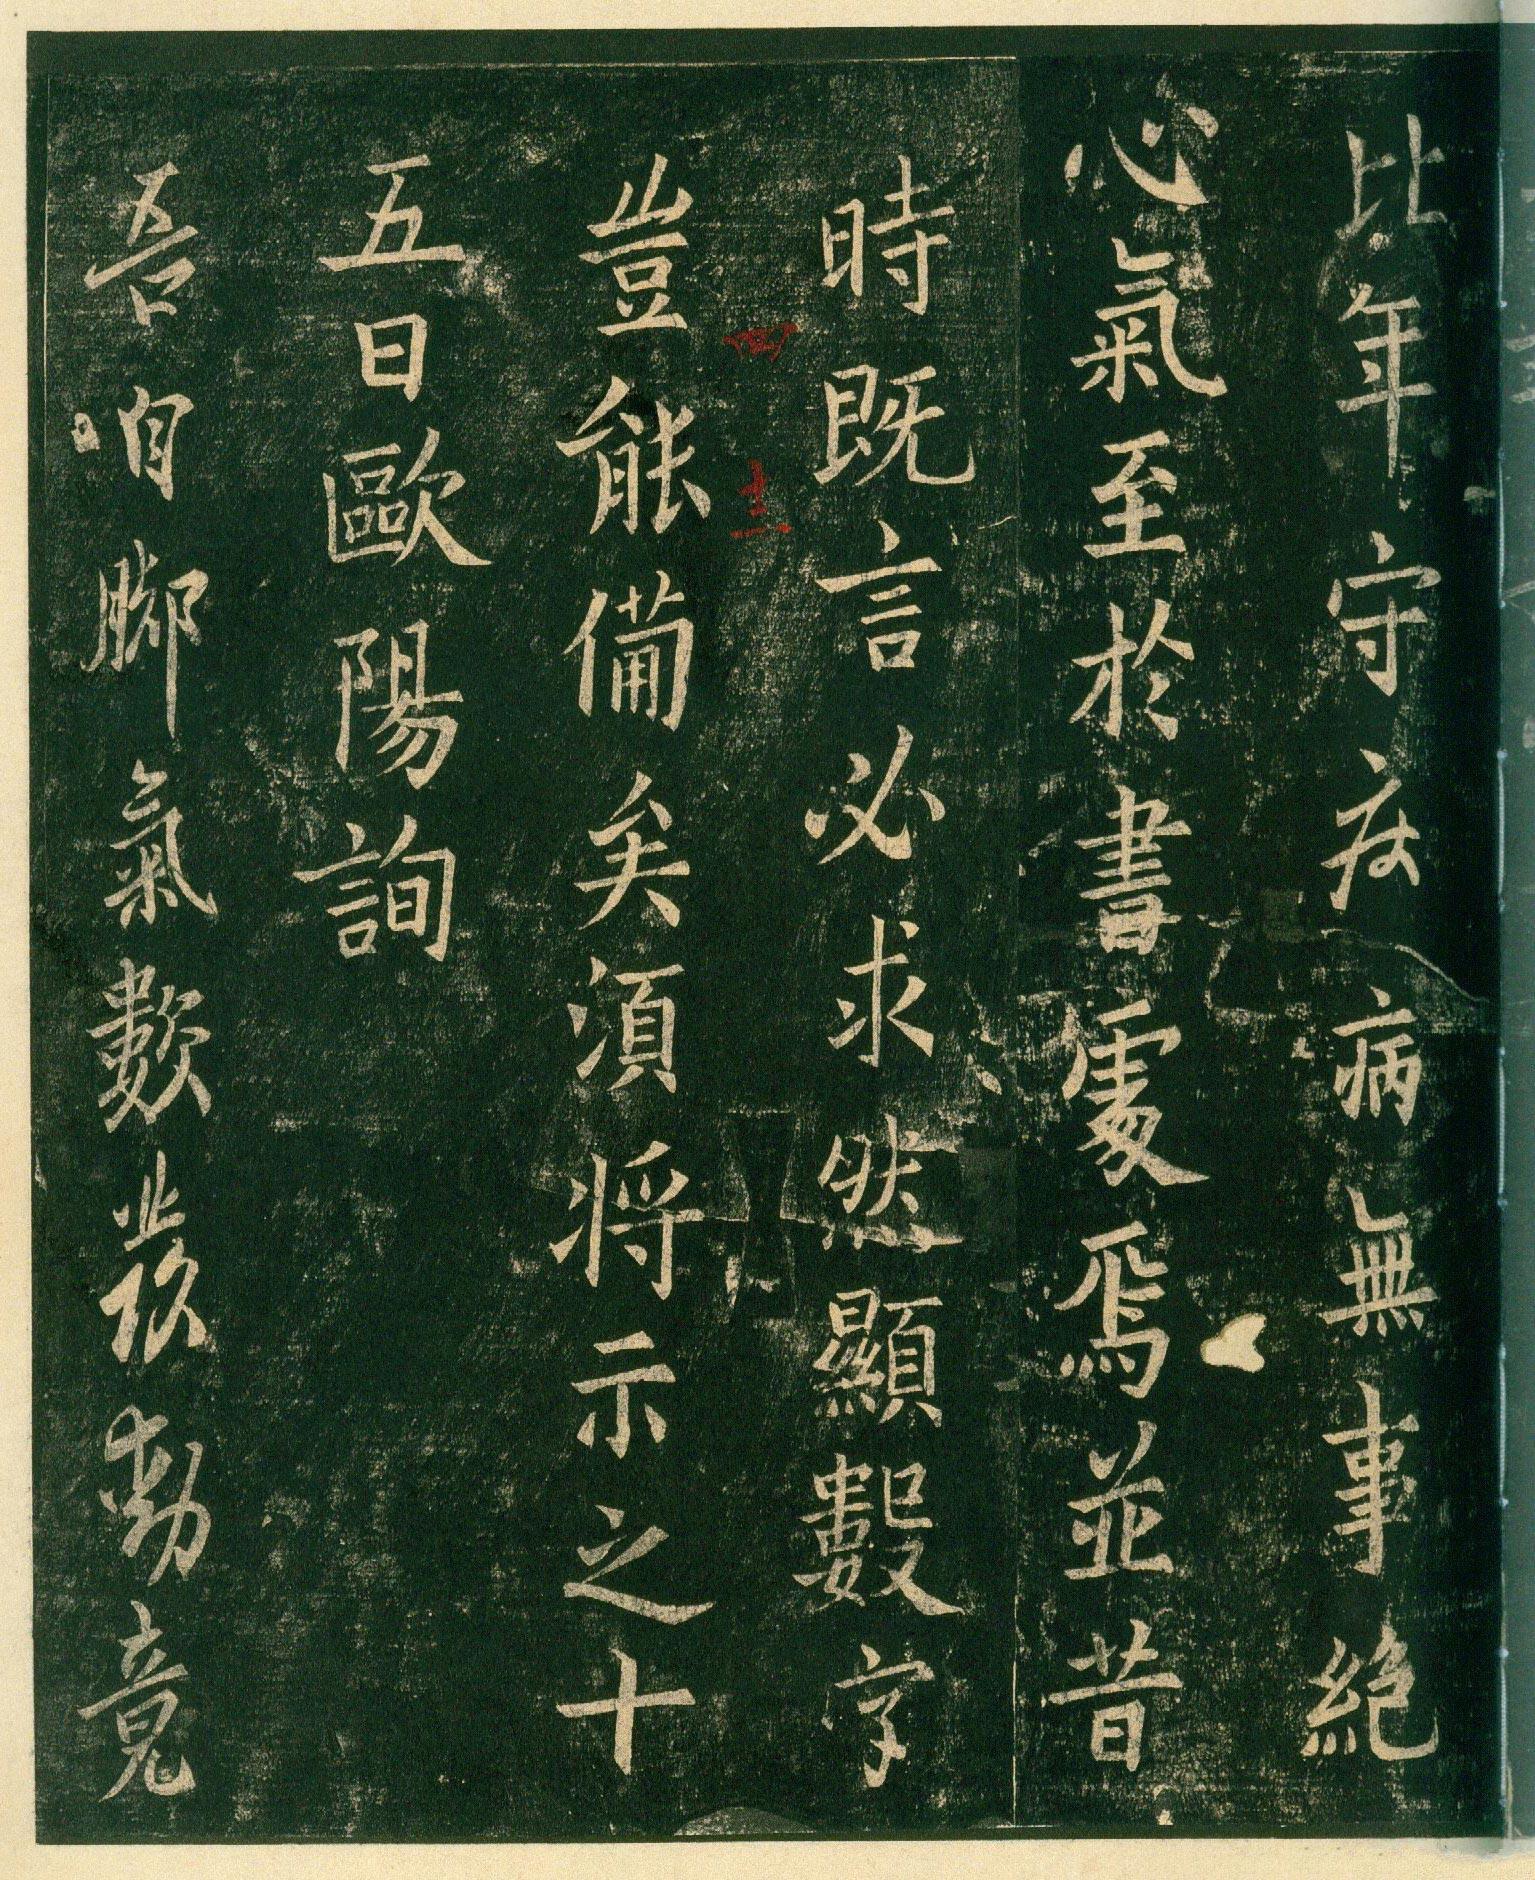 比年守疾病無事絶
心氣至於書處焉並昔
時既言必求然顯數字
四
豈能備矣須將示之十
五日歐陽詢
吾自脚氣數發動竟